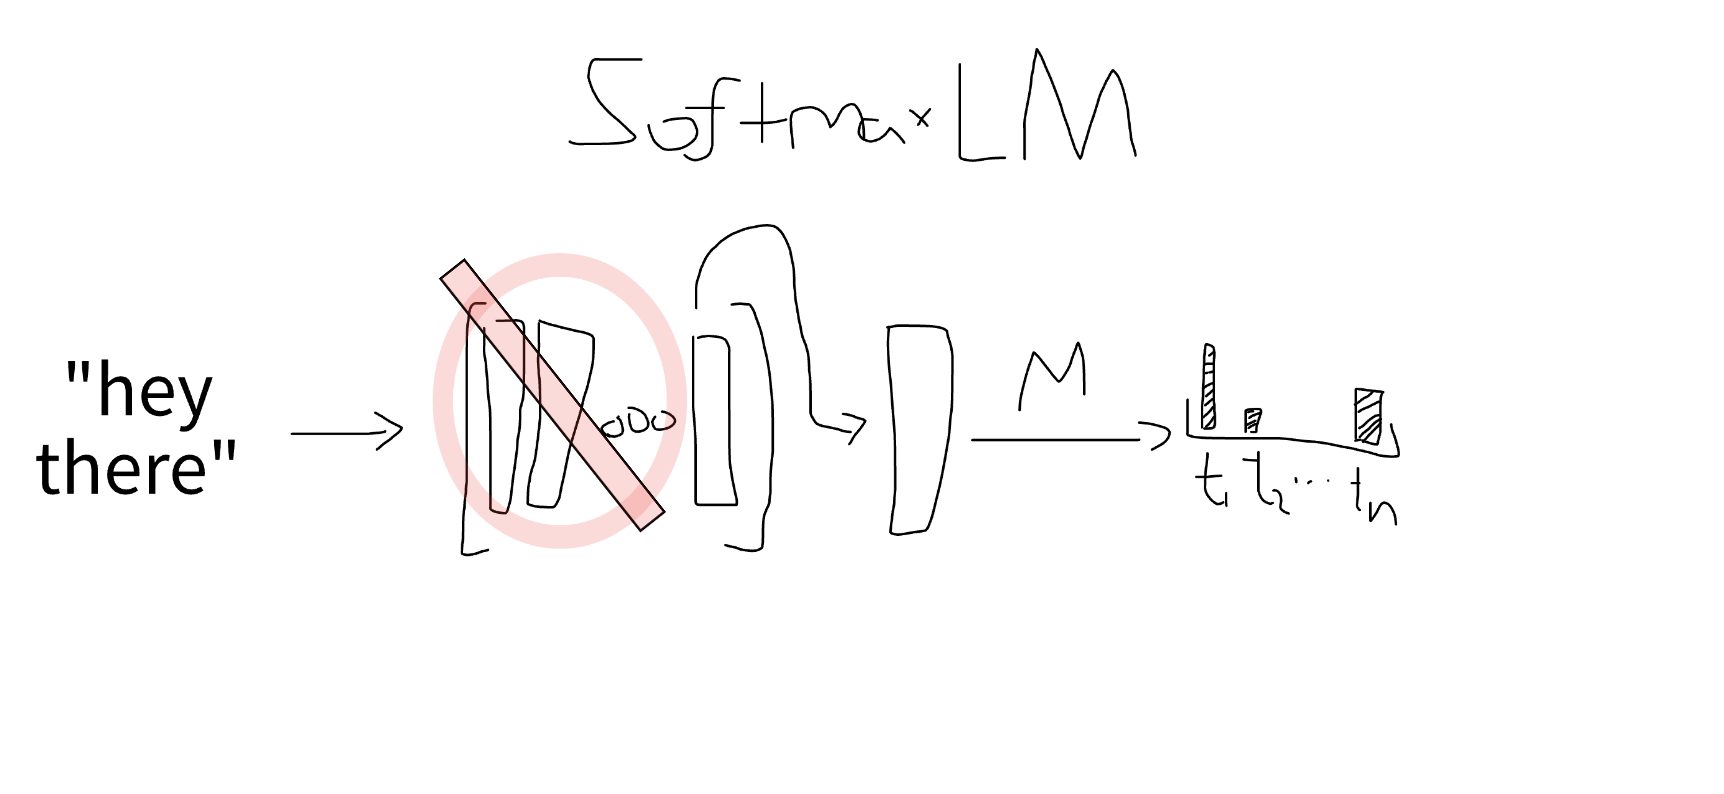 Softmax LM
"hey
there"
M
t₁ t₂ ... tₙ